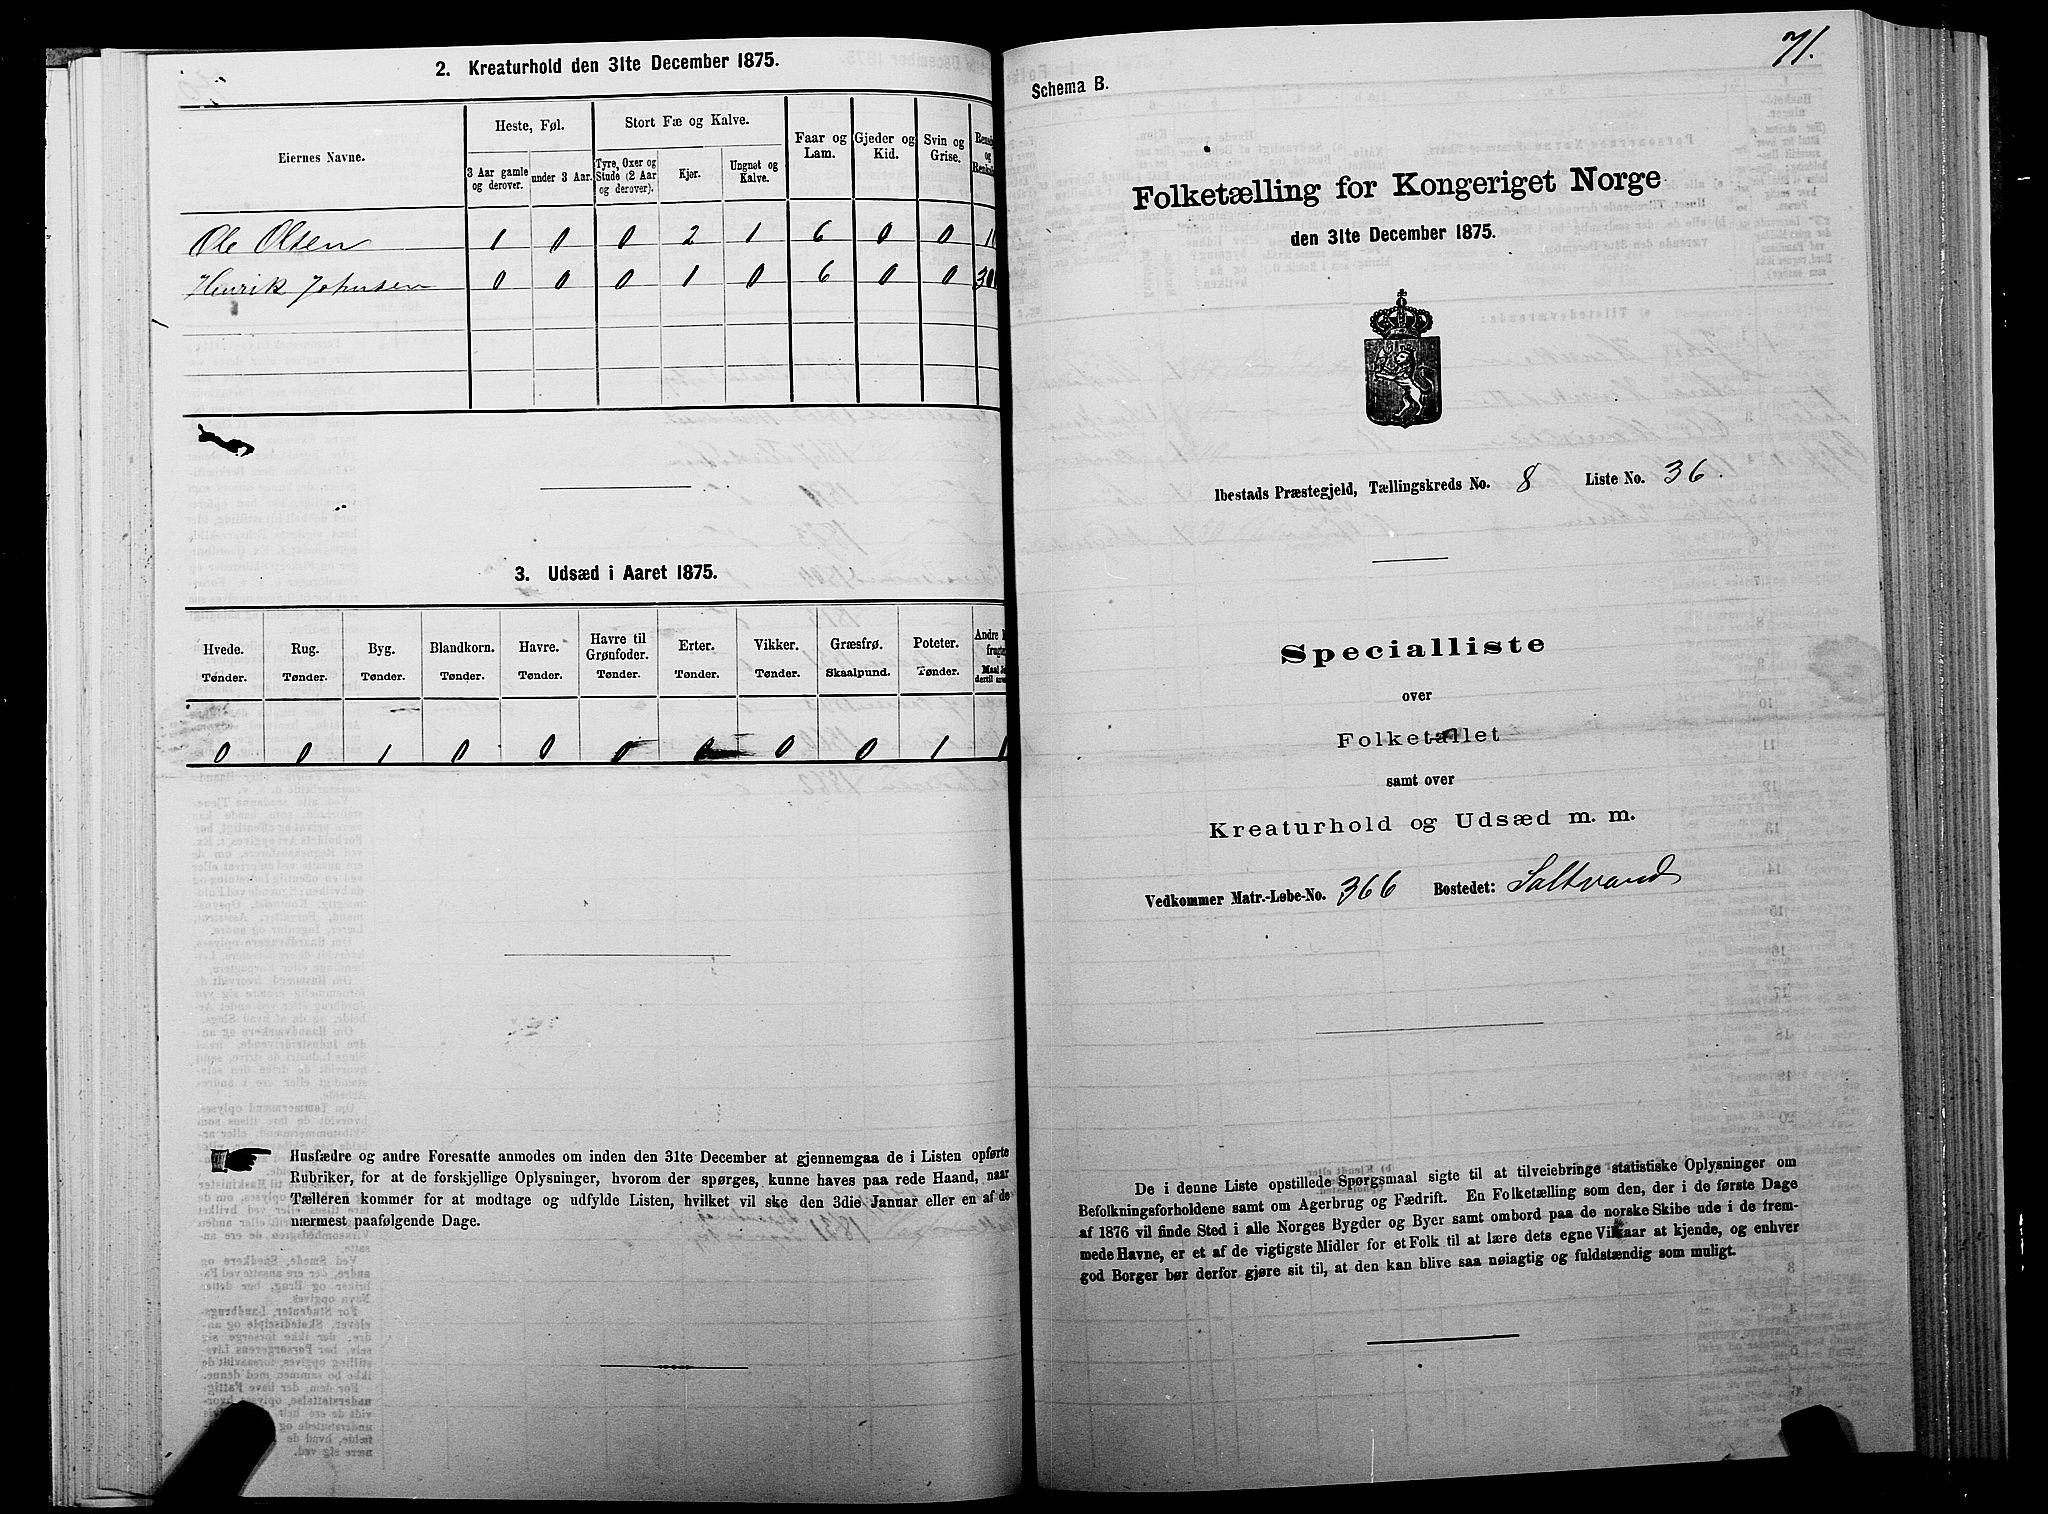 2. Kreaturhold den 31te December 1875.
Eiernes Navne.
Heste, Føl.
Stort Fæ og Kalve.
Faar og Lam.
Gjeder og Kid.
Svin og Grise.
3 Aar gamle og derover.
under 3 Aar.
Tyre, Oxer og Stude (2 Aar og derover).
Kjør.
Ungnøt og Kalve.
Ole Olsen 1 0 0 2 1 6 0 0
Henrik Johnsen 0 0 0 1 0 6 0 0
3. Udsæd i Aaret 1875.
Hvede. Rug. Byg. Blandkorn. Havre. Havre til Grønfoder. Erter. Vikker. Græsfrø. Poteter.
Tønder. Tønder. Tønder. Tønder. Tønder. Tønder. Tønder. Tønder. Skaalpund. Tønder.
0 0 1 0 0 0 0 0 0 1
Husfædre og andre Foresatte anmodes om inden den 31te December at gjennemgaa de i Listen opførte
Rubriker, for at de forskjellige Oplysninger, hvorom der spørges, kunne haves paa rede Haand, naar
Tælleren kommer for at modtage og udfylde Listen, hvilket vil ske den 3die Januar eller en af de
nærmest paafølgende Dage.
71.
Schema B.
Folketælling for Kongeriget Norge
den 31te December 1875.
Ibestads Præstegjeld, Tællingskreds No. 8 Liste No. 36.
Specialliste
over
Folketallet
samt over
Kreaturhold og Udsæd m. m.
Vedkommer Matr.-Løbe-No. 366 Bostedet: Saltvand
De i denne Liste opstillede Spørgsmaal sigte til at tilveiebringe statistiske Oplysninger om
Befolkningsforholdene samt om Agerbrug og Fædrift. En Folketælling som den, der i de første Dage
af 1876 vil finde Sted i alle Norges Bygder og Byer samt ombord paa de norske Skibe ude i de frem-
mede Havne, er et af de vigtigste Midler for et Folk til at lære dets egne Vilkaar at kjende, og enhver
god Borger bør derfor gjøre sit til, at den kan blive saa nøiagtig og fuldstændig som muligt.